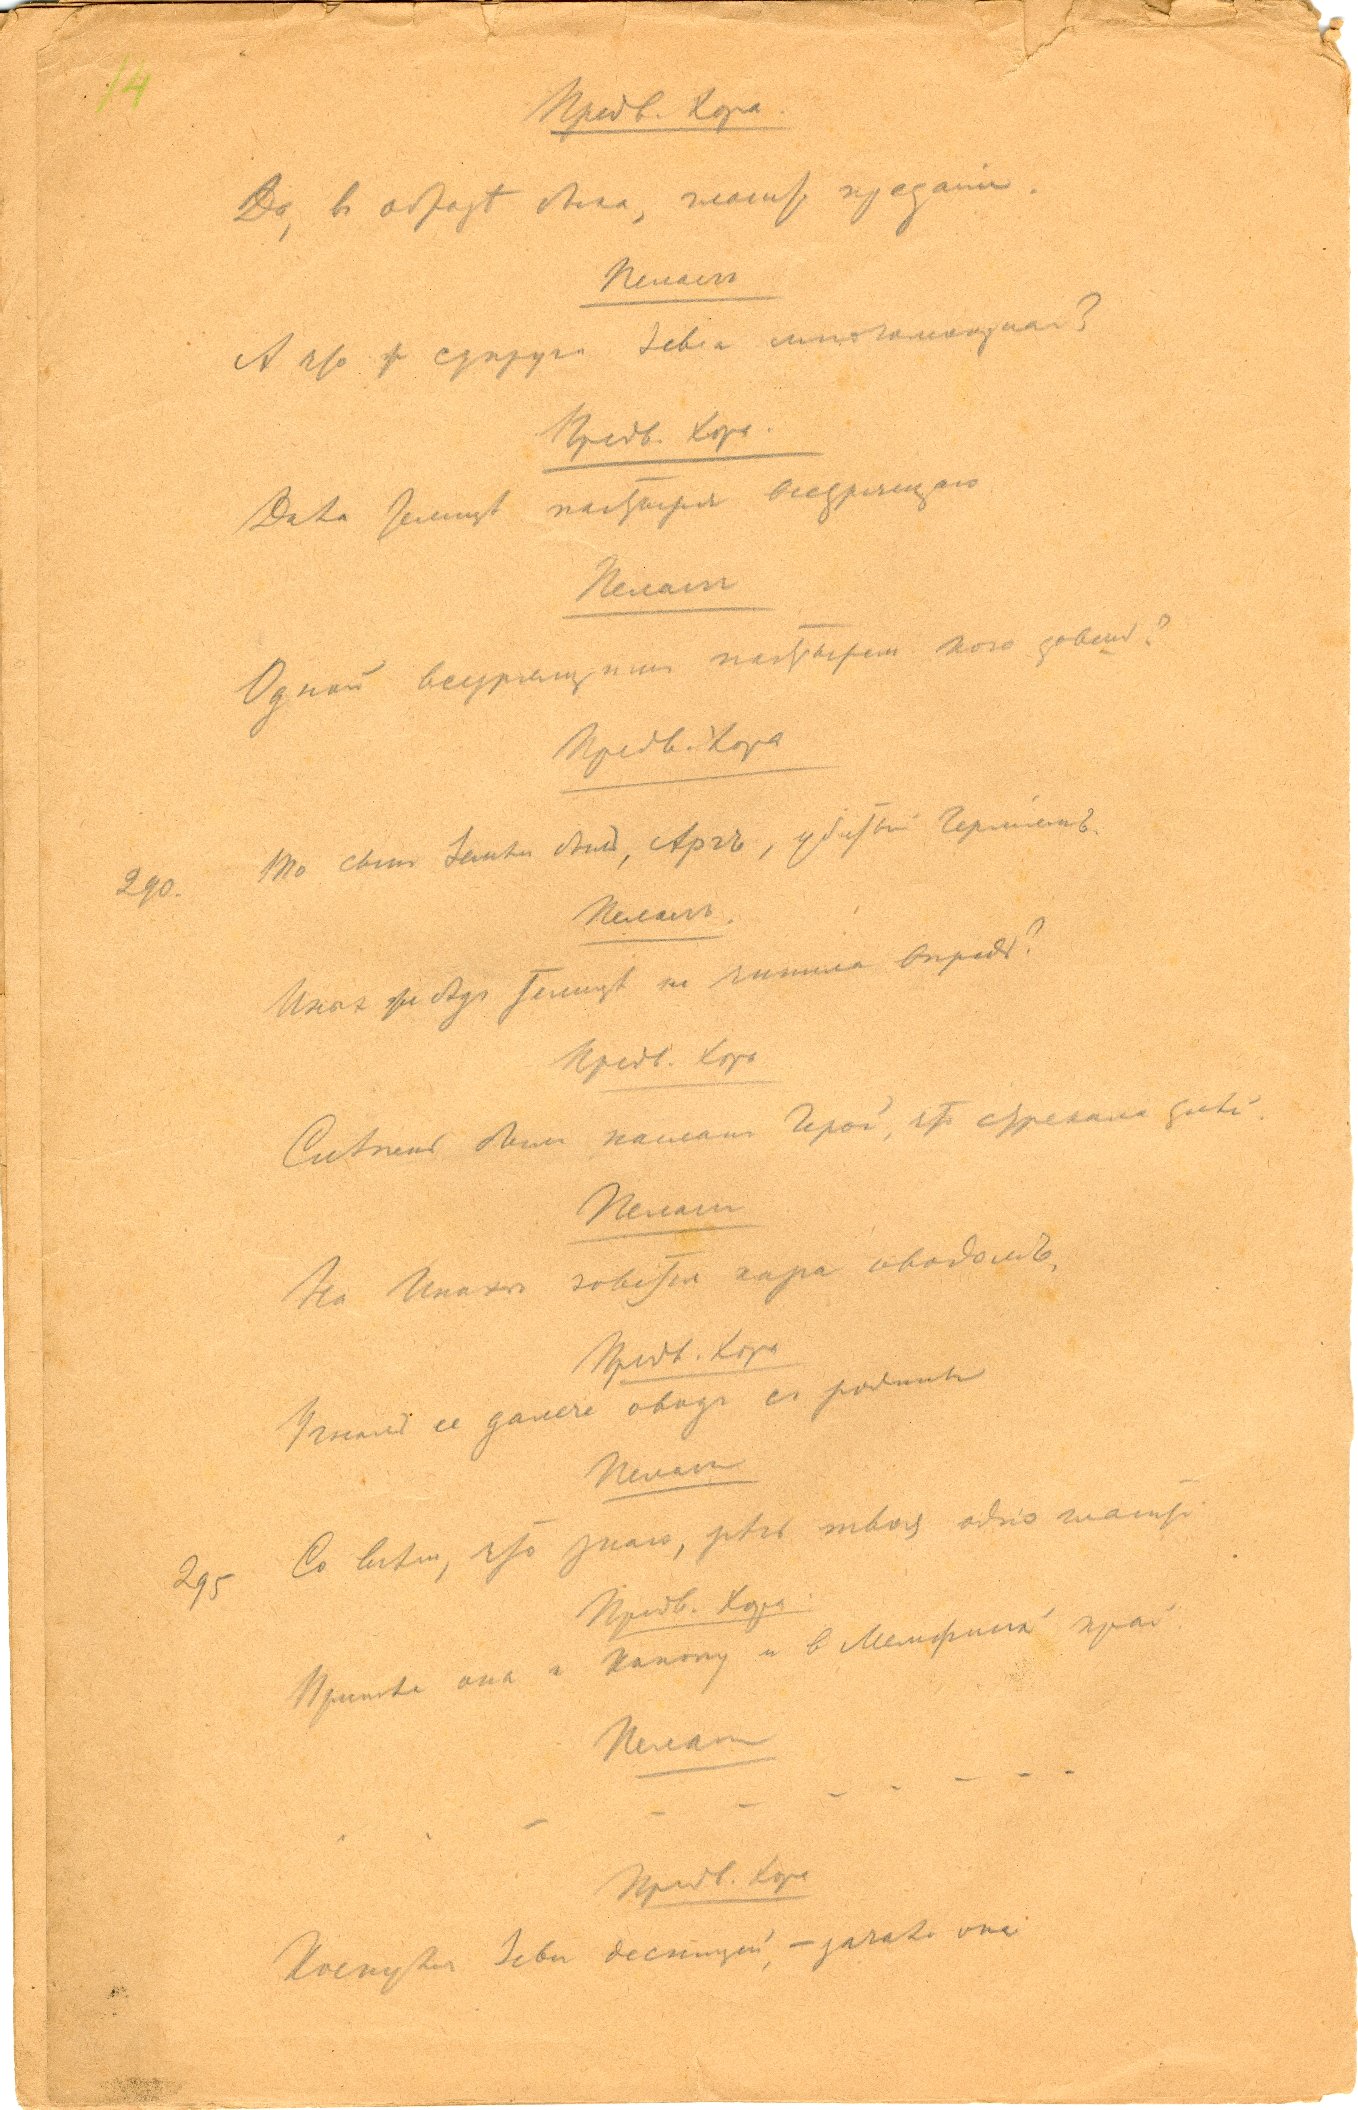 14
Предв. Хора.
Да, в образѣ быка, гласит преданіе.
Пеласгъ
А что ж супруга Зевса многомощная?
Предв. Хора.
Дала телицѣ пастыря всезрящаго
Пеласгъ
Одной всезрящим пастырем кого зовешь?
Предв. Хора
290.
То сын Земли был, Аргъ, убитый Герміемъ.
Пеласгъ.
Иных же бѣд телицѣ не чинила
Предв. Хора
Слѣпень был наслан Герой, что стрекала злѣй.
Пеласгъ
На Инахѣ зовется кара оводомъ.
Предв. Хора
Угнал ее далече овод с родины
Пеласгъ
295
Со всѣм, что знаю, рѣчь твоя одно гласит
Предв. Хора.
Пришла она к Канопу и в Мемфискій край.
Пеласгъ
. . – – – – – – – –
Предв. Хора
Коснулся Зевс десницей, – зачала она